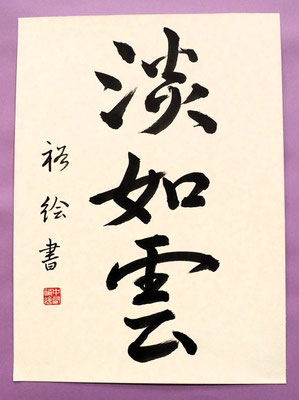 淡如雲
裕絵書